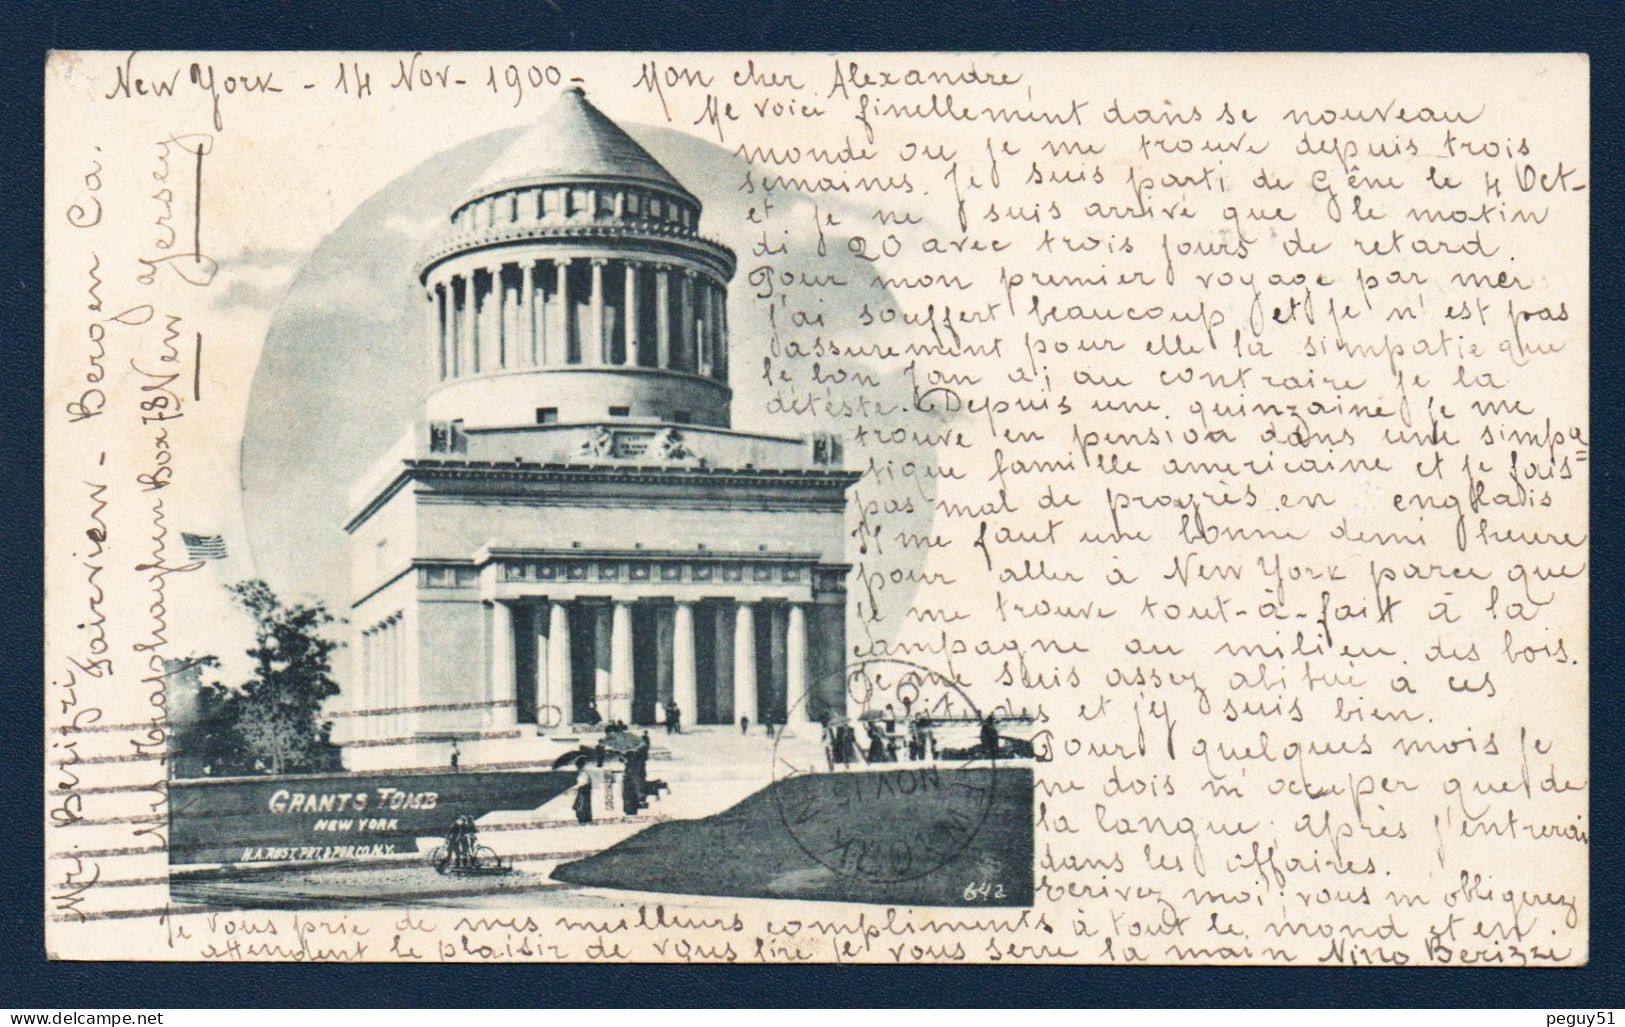 New York - 14 Nov - 1900 - Mon cher Alexandre,
Me voici finellement dans se nouveau
monde ou je me trouve depuis trois
semaines. Je suis parti de Gêne le 4 Oct-
et je ne suis arrivé que le matin
di 20 avec trois jours de retard.
Pour mon premier voyage par mer
j'ai souffert beaucoup et je n'est pas
assurement pour elle la simpatie que
le bon Jan a; au contraire je la
détéste. Depuis une quinzaine je me
trouve en pension dans une simpa=
tique famille americaine et je fais
pas mal de progrès en englais
Il me faut une bonne demi heure
pour aller à New York parce que
je me trouve tout-à-fait à la
campagne au milieu des bois.
Je me suis assez abitué à ces
et j'y suis bien.
Pour quelques mois je
ne dois m'occuper que de
la langue; après j'entrerai
dans les affaires.
Ecrivez moi; vous m'obligerez
Je vous prie de mes meilleurs compliments à tout le mond et en
attendent le plaisir de vous lire je vous serre la main Nino Berizzi
Mr. Berizzi
Fairview - Bergen Ca.
Box 78 New Jersey
GRANTS TOMB
NEW YORK
H.A. ROST PRT. & PUB. CO. N.Y.
642
NEW YORK
NOV 15
peguy51
www.delcampe.net